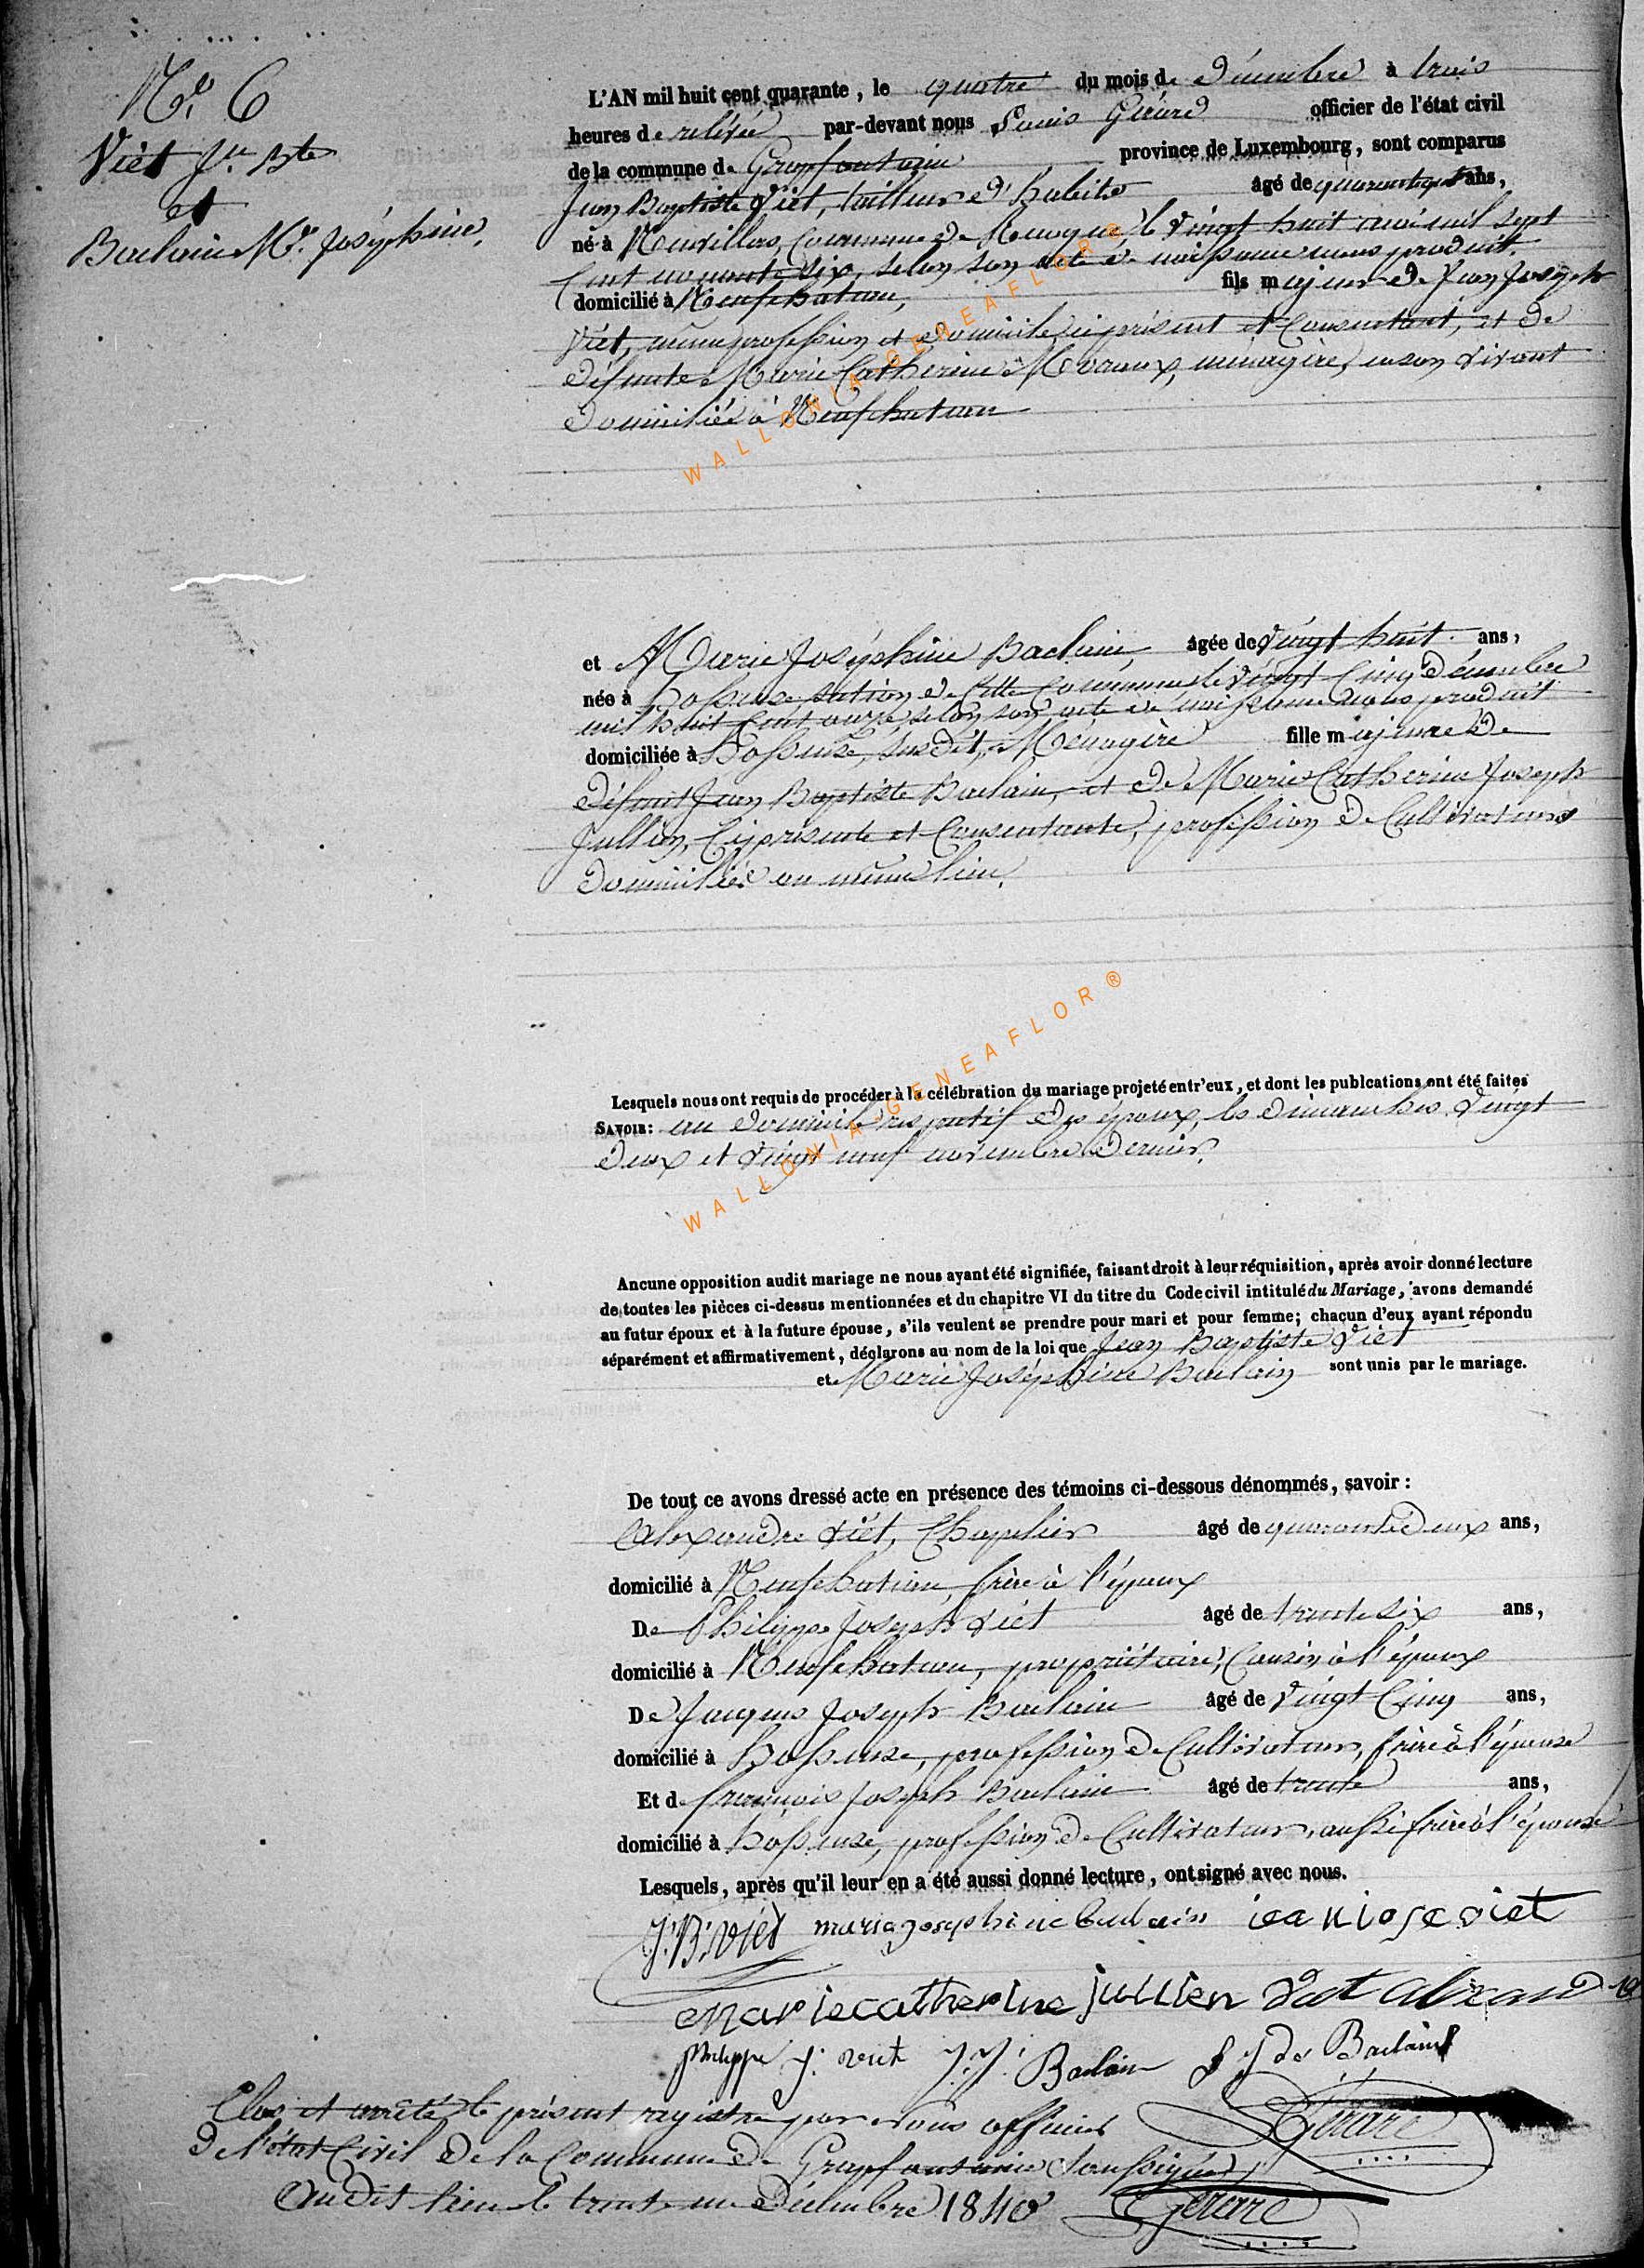 N.o 6
Viet Jn. Bte
et
Baclain Me. Joséphine.
L'AN mil huit cent quarante, le quatre du mois de Décembre à trois
heures de relévée par-devant nous Louis Gérard officier de l'état civil
de la commune de Grapfontaine province de Luxembourg, sont comparus
Jean Baptiste Viet, tailleur d'habits âgé de quarante ans,
né à Neuvillers, Commune de le vingt huit mai mil sept
Cent nonante dix, selon son acte de naissance nous produit.
domicilié à Neufchateau, fils majeur de Jean Joseph
Viet, même profession et domicile, ci présent et Consentant, et de
défunte Marie Catherine ménagère, en son vivant
domiciliée à Neufchateau
et Marie Joséphine Baclain, âgée de vingt huit ans,
née à Hosseuse, Section de Cette Commune le vingt Cinq Décembre
mil huit Cent onze, selon son acte de naissance nous produit
domiciliée à Hosseuse, susdit, Ménagère fille majeure de
défunt Jean Baptiste Baclain, et de Marie Catherine Joseph
Jullien, Ci présente et Consentante, profession de Cultivateurs
domiciliés au même lieu.
Lesquels nous ont requis de procéder à la célébration du mariage projeté entr'eux, et dont les publcations ont été faites
SAVOIR: au domicile respectif des époux, les dimanches vingt
deux et vingt neuf novembre dernier.
Aucune opposition audit mariage ne nous ayant été signifiée, faisant droit à leur réquisition, après avoir donné lecture
de toutes les pièces ci-dessus mentionnées et du chapitre VI du titre du Code civil intitulé du Mariage, avons demandé
au futur époux et à la future épouse, s'ils veulent se prendre pour mari et pour femme; chacun d'eux ayant répondu
séparément et affirmativement, déclarons au nom de la loi que Jean Baptiste Viet
et Marie Joséphine Baclain sont unis par le mariage.
De tout ce avons dressé acte en présence des témoins ci-dessous dénommés, savoir:
Alexandre Viet, Chapelier âgé de quarante deux ans,
domicilié à Neufchateau, frère à l'époux
De Philippe Joseph Viet âgé de trente six ans,
domicilié à Neufchateau, propriétaire, Cousin à l'époux
De Jacques Joseph Baclain âgé de vingt Cinq ans,
domicilié à Hosseuse, profession de Cultivateur, frère à l'épouse
Et de François Joseph Baclain âgé de trente ans,
domicilié à Hosseuse, profession de Cultivateur, aussi frère à l'épouse
Lesquels, après qu'il leur en a été aussi donné lecture, ont signé avec nous.
J. B. Viet marie josephine baclain jean josce viet
marie catherine jullien viet alexandre
philippe J. viet J. J. Baclain f J de Baclain
Gérard
Clos et arrêté le présent registre par nous officier
de l'état Civil de la Commune de Grapfontaine Soussigné,
Audit lieu le trente un Décembre 1840
Gérard
WALLONIA-GENEAFLOR®
WALLONIA-GENEAFLOR®